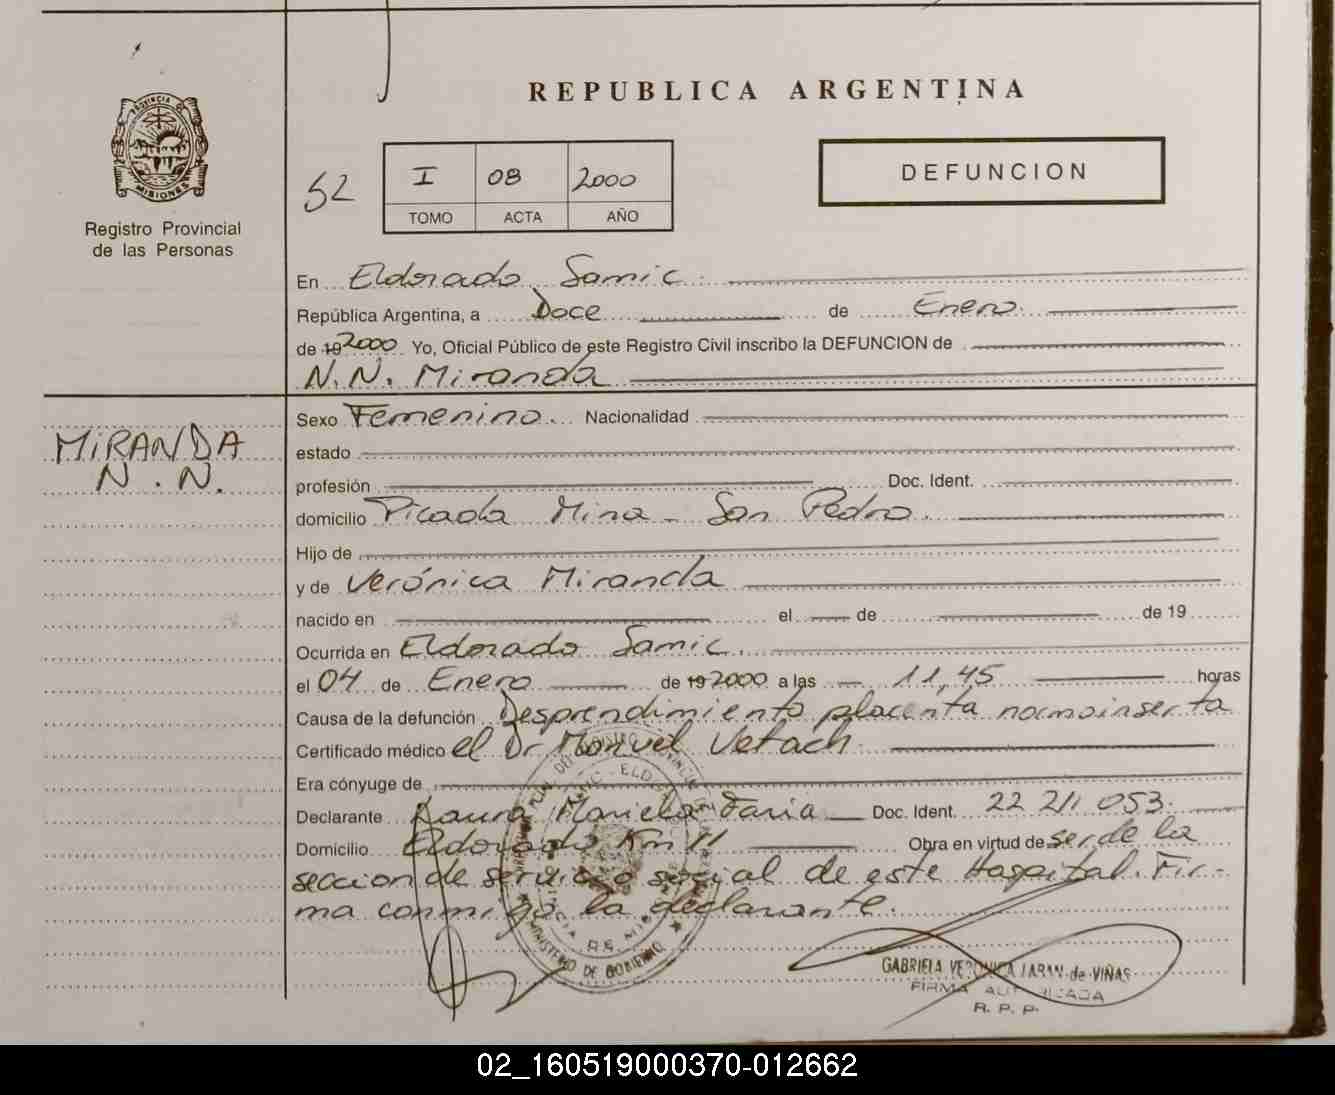 REPUBLICA ARGENTINA
PROVINCIA DE
MISIONES
Registro Provincial
de las Personas
DEFUNCION
52
I 08 2000
TOMO ACTA AÑO
En Eldorado Samic.
República Argentina, a Doce de Enero.
de 192000 Yo, Oficial Público de este Registro Civil inscribo la DEFUNCION de
N.N. Miranda
MIRANDA
N.N.
Sexo Femenino. Nacionalidad
estado
profesión Doc. Ident.
domicilio Picada Mina - San Pedro.
Hijo de
y de Verónica Miranda
nacido en el de de 19
Ocurrida en Eldorado Samic.
el 04 de Enero de 192000 a las 11,45 horas
Causa de la defunción Desprendimiento placenta normoinserta
Certificado médico el Dr Manuel Vetach.
Era cónyuge de
Declarante Laura Mariela Faria Doc. Ident. 22 211 053.
Domicilio Eldorado Km 11 Obra en virtud de ser de la
seccion de servicio social de este Hospital. Fir-
ma conmigo la declarante.
MINISTERIO DE GOBIERNO
GABRIELA VERONICA de VIÑAS
FIRMA AUTORIZADA
R. P. P.
02_160519000370-012662